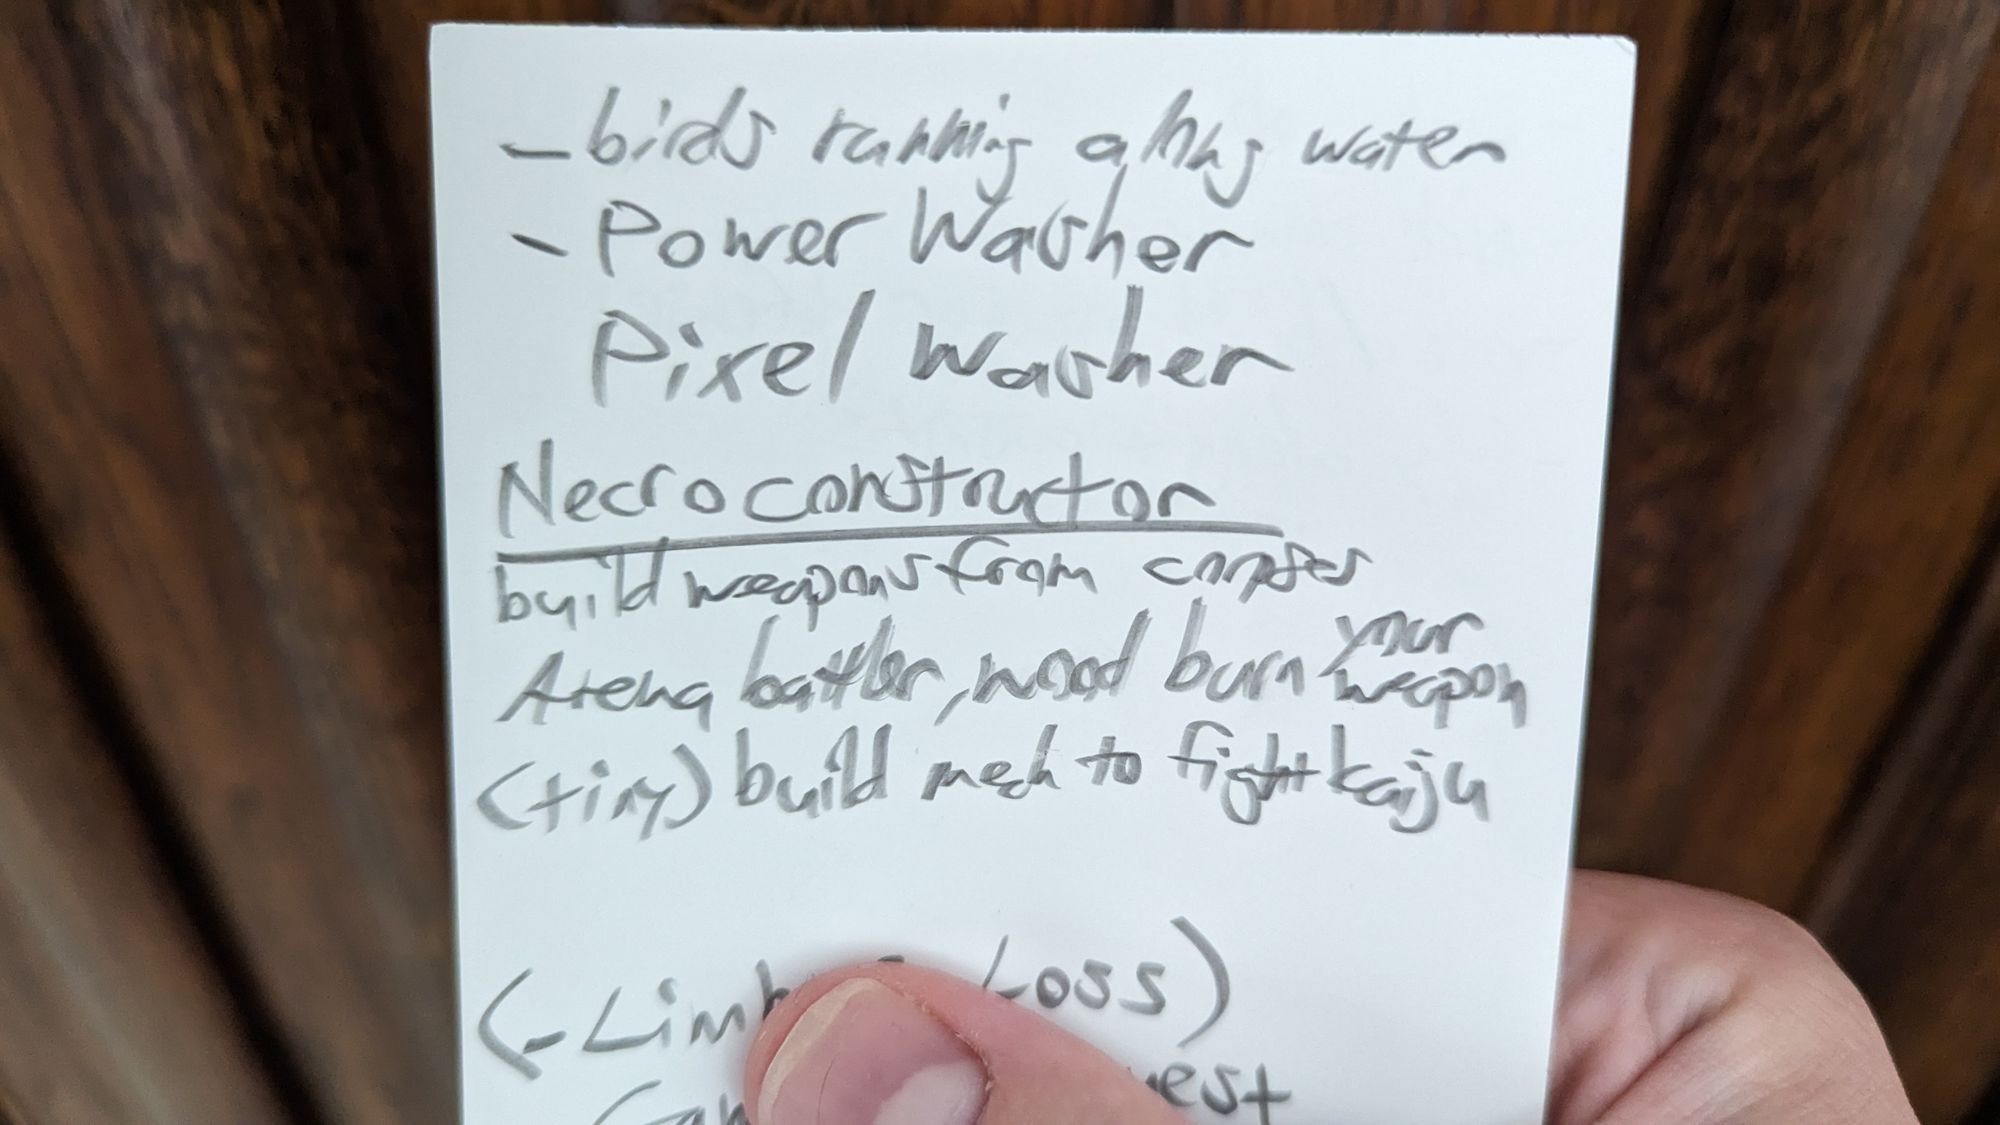 - birds running along water
- Power Washer
Pixel Washer
Necroconstructor
build weapons from corpses
Arena battler, wood burn your weapon
(tiny) build mech to fight kaiju
(- Loss)